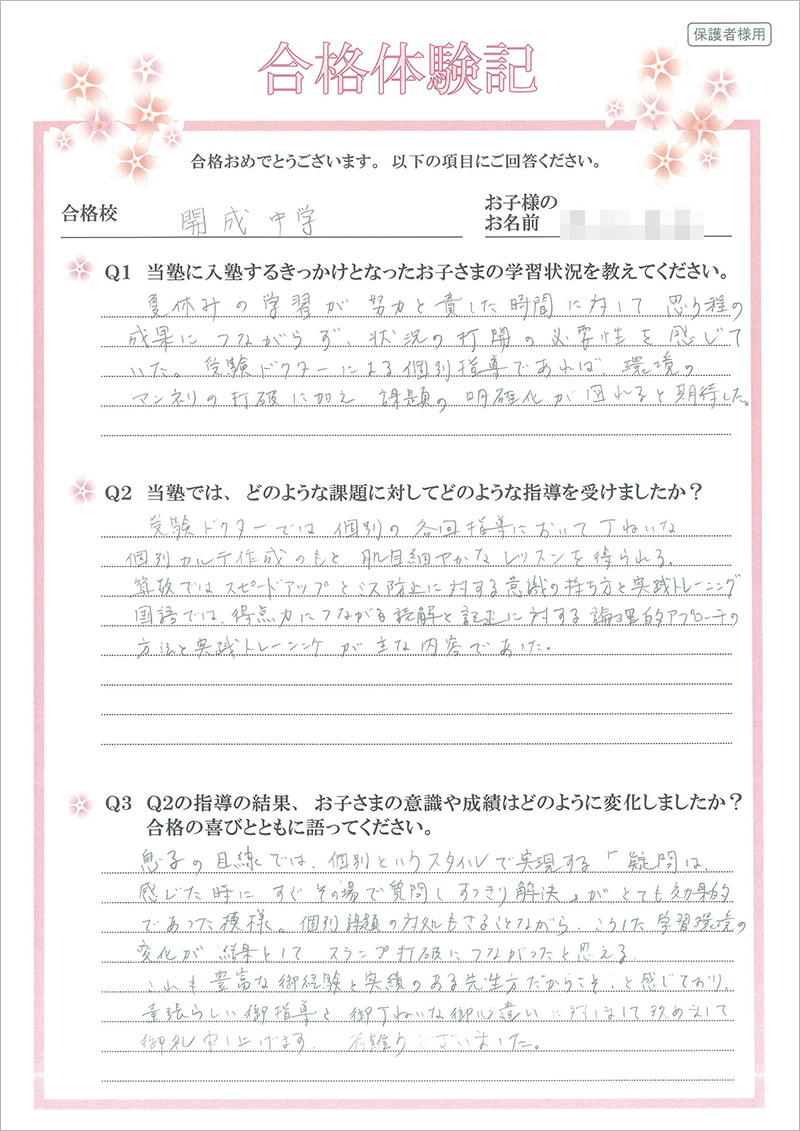 保護者様用
合格体験記
合格おめでとうございます。以下の項目にご回答ください。
合格校 開成中学
お子様の
お名前
Q1 当塾に入塾するきっかけとなったお子さまの学習状況を教えてください。
夏休みの学習が努力と費した時間に対して思う程の
成果につながらず、状況の打開の必要性を感じて
いた。受験ドクターによる個別指導であれば、環境の
マンネリの打破に加え 課題の明確化が図れると期待した。
Q2 当塾では、どのような課題に対してどのような指導を受けましたか？
受験ドクターでは個別の各回指導において丁ねいな
個別カルテ作成のもと肌目細やかなレッスンを得られる。
算数ではスピードアップとミス防止に対する意識の持ち方と実践トレーニング
国語では、得点力につながる読解と記述に対する論理的アプローチの
方法と実践トレーニングが主な内容であった。
Q3 Q2の指導の結果、お子さまの意識や成績はどのように変化しましたか？
合格の喜びとともに語ってください。
息子の目線では、個別というスタイルで実現する「疑問は、
感じた時にすぐその場で質問しすっきり解決」がとても効果的
であった模様。個別課題の対処もさることながら、こうした学習環境の
変化が結果としてスランプ打破につながったと思える。
これも豊富な御経験と実績のある先生方だからこそ、と感じており、
素張らしい御指導と御丁ねいな御心遣いに対しまして改めまして
御礼申し上げます。有難うございました。